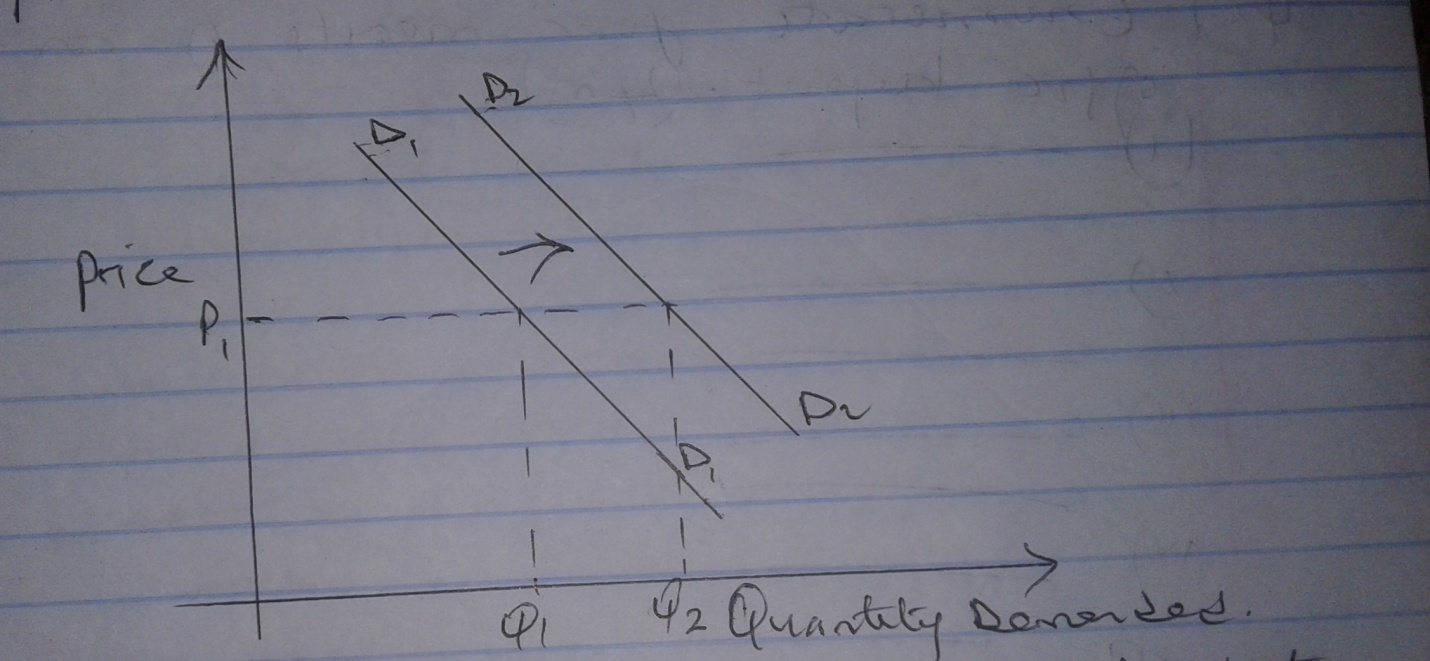 D2
D1
Price
P1
D2
D1
Q1
Q2 Quantity Demanded.